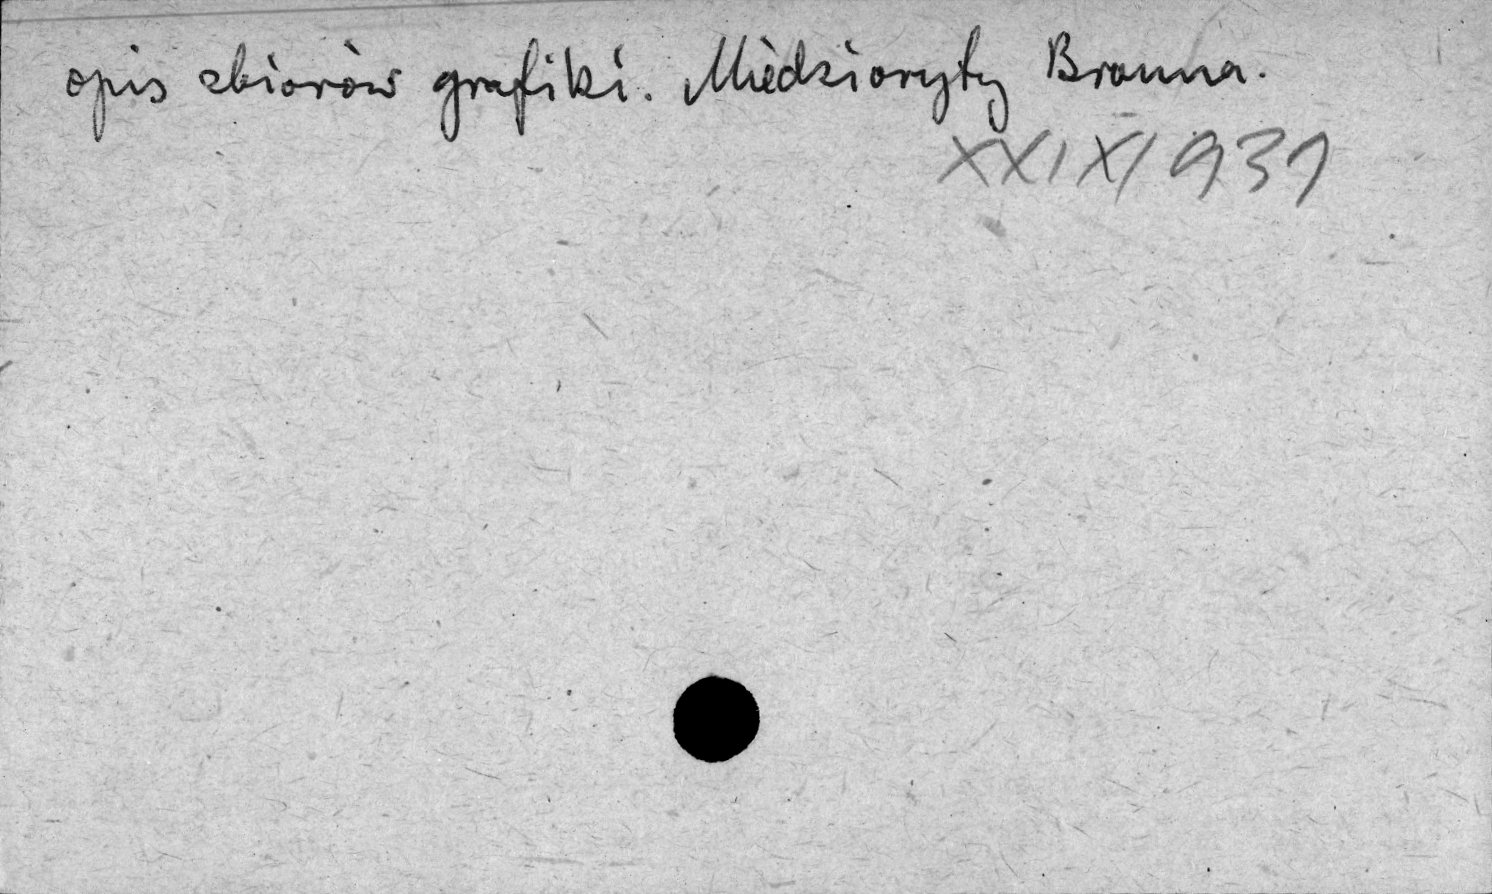 opis zbiorów grafiki. Miedzioryty Brauna.
XXIX/931